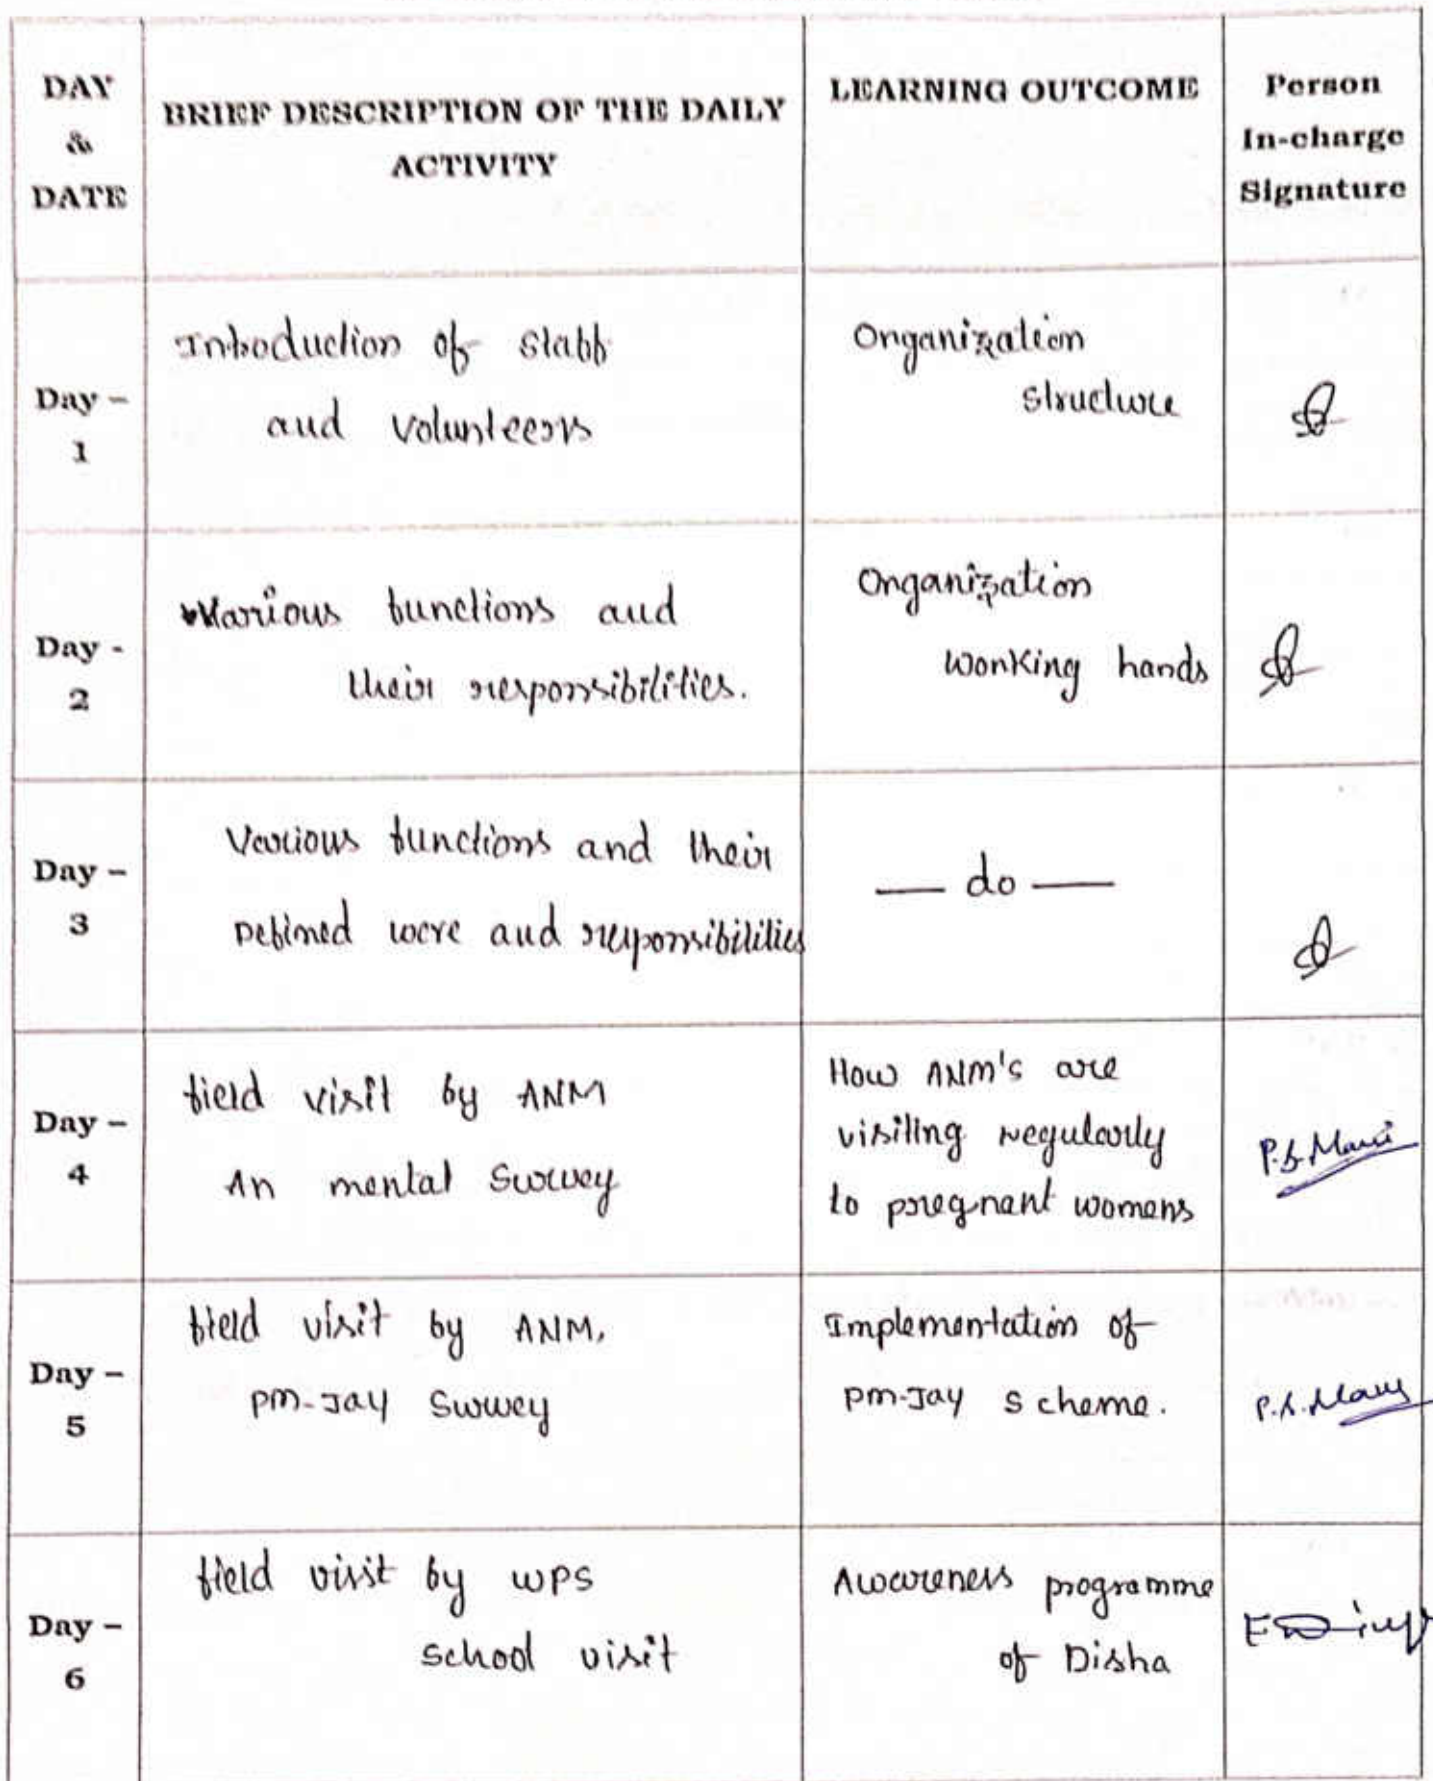 DAY & DATE
BRIEF DESCRIPTION OF THE DAILY
ACTIVITY
LEARNING OUTCOME
Person
In-charge
Signature
Day –
1
Introduction of staff
and volunteers
Organization
structure
Day -
2
Various functions and
their responsibilities.
Organization
working hands
Day –
3
Various functions and their
Defined were and responsibilities
— do —
Day –
4
field visit by ANM
An mental Survey
How ANM's are
visiting regularly
to pregnant womens
Day –
5
field visit by ANM,
PM-JAY Survey
Implementation of
PM-JAY Scheme.
Day –
6
field visit by WPS
School visit
Awareness programme
of Disha